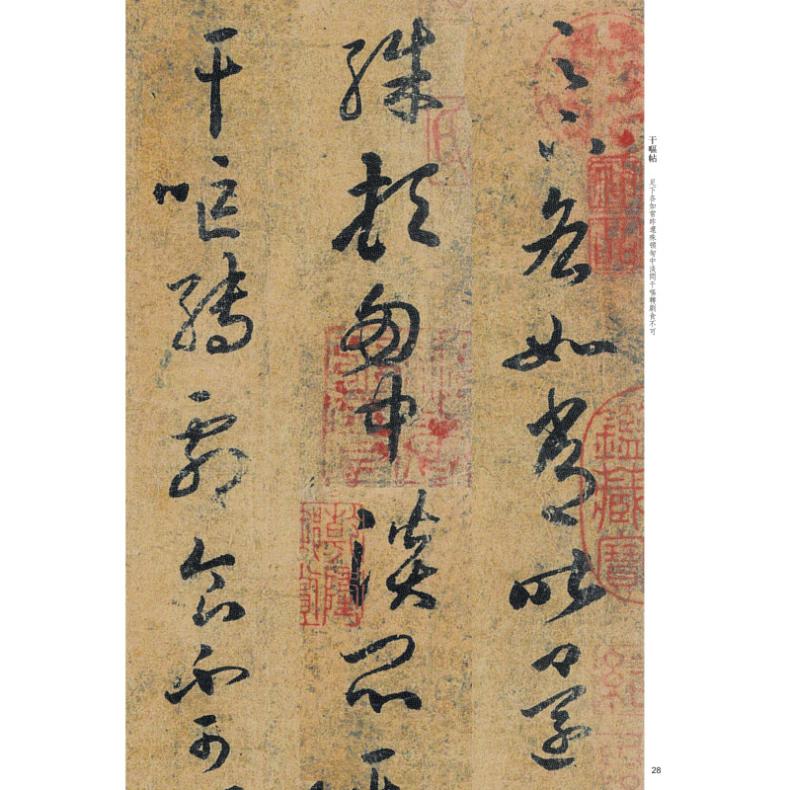 足下各如常昨還
殊頓匈中淡悶
干嘔轉劇食不可
鑑藏寶
干嘔帖
足下各如常昨還殊頓匈中淡悶干嘔轉劇食不可
28